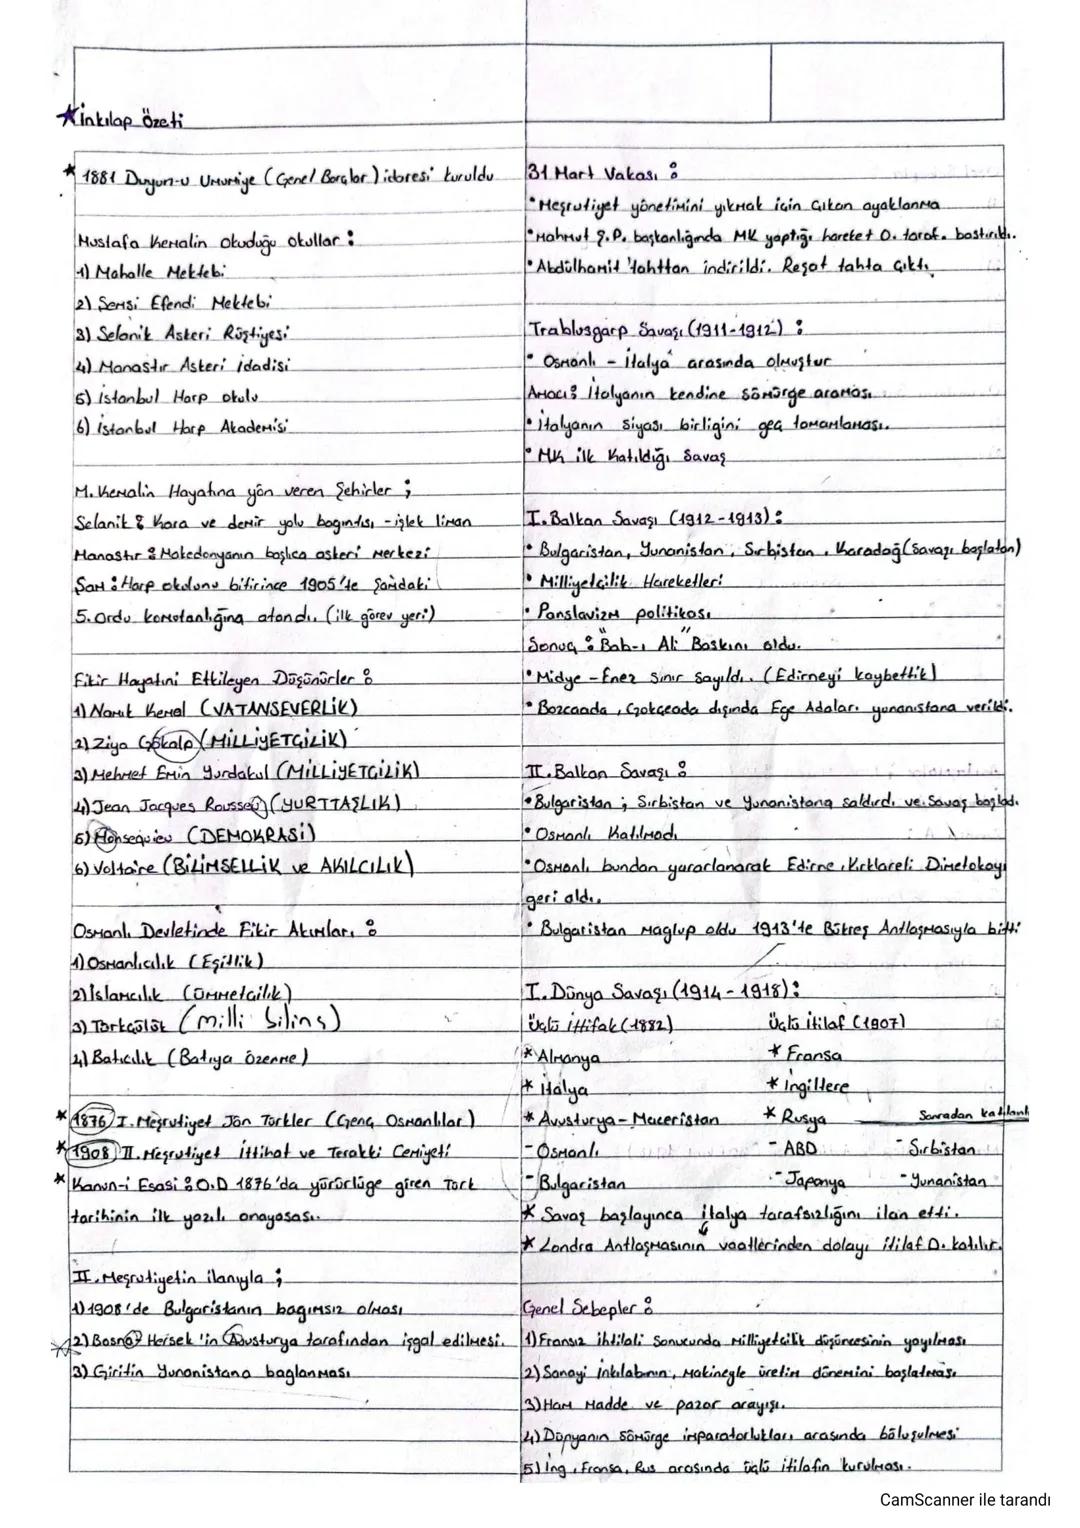 ★ İnkılap Özeti
* 1881 Duyun-u Umumiye (Genel Borçlar) idaresi kuruldu
Mustafa Kemalin Okuduğu okullar :
1) Mahalle Mektebi
2) Şemsi Efendi Mektebi
3) Selanik Askeri Rüştiyesi
4) Manastır Askeri idadisi
5) istanbul Harp okulu
6) istanbul Harp Akademisi
M. Kemalin Hayatına yön veren Şehirler ;
Selanik : Kara ve demir yolu bagıntısı - işlek liman
Manastır : Makedonyanın başlıca askeri merkezi
Şam : Harp okulunu bitirince 1905'te Şamdaki
5. Ordu komutanlığına atandı. (ilk görev yeri)
Fikir Hayatını Etkileyen Düşünürler :
1) Namık Kemal (VATANSEVERLİK)
2) Ziya Gökalp (MİLLİYETÇİLİK)
3) Mehmet Emin Yurdakul (MİLLİYETÇİLİK)
4) Jean Jacques Rousseu (YURTTAŞLIK)
5) Monsequieu (DEMOKRASİ)
6) Voltaire (BİLİMSELLİK ve AKILCILIK)
Osmanlı Devletinde Fikir Akımları :
1) Osmanlıcılık (Eşitlik)
2) İslamcılık (Ümmetçilik)
3) Türkçülük (milli bilinç)
4) Batıcılık (Batıya özenme)
* 1876 I. Meşrutiyet Jön Türkler (Genç Osmanlılar)
* 1908 II. Meşrutiyet ittihat ve Terakki Cemiyeti
* Kanun-i Esasi : O.D 1876'da yürürlüğe giren Türk
tarihinin ilk yazılı anayasası.
II. Meşrutiyetin ilanıyla ;
1) 1908'de Bulgaristanın bagımsız olması
2) Bosna Hersek'in Avusturya tarafından işgal edilmesi.
3) Giritin Yunanistana baglanması
31 Mart Vakası :
• Meşrutiyet yönetimini yıkmak için çıkan ayaklanma
• Mahmut Ş.P. başkanlığında MK yaptığı hareket O. taraf. bastırıldı.
• Abdülhamit tahttan indirildi. Reşat tahta çıktı
Trablusgarp Savaşı (1911-1912) :
• Osmanlı - italya arasında olmuştur
Amacı : italyanın kendine sömürge araması
• italyanın siyası birligini geç tamamlaması.
• MK ilk katıldığı Savaş
I. Balkan Savaşı (1912-1913) :
• Bulgaristan, Yunanistan, Sırbistan, Karadağ (Savaşı başlatan)
• Milliyetçilik Hareketleri
• Panslavizm politikası
Sonuç : "Bab-ı Ali" Baskını oldu.
• Midye - Enez sınır sayıldı. (Edirneyi kaybettik)
• Bozcaada, Gökçeada dışında Ege Adaları yunanistana verildi.
II. Balkan Savaşı :
• Bulgaristan ; Sırbistan ve Yunanistana saldırdı ve Savaş başladı.
• Osmanlı Katılmadı
• Osmanlı bundan yararlanarak Edirne, Kırklareli Dimetokayı
geri aldı.
• Bulgaristan Maglup oldu 1913'te Bükreş Antlaşmasıyla bitti
I. Dünya Savaşı (1914-1918) :
Üçlü ittifak (1882) Üçlü itilaf (1907)
* Almanya * Fransa
* italya * ingiltere
* Avusturya - Maceristan * Rusya Sonradan katılanl
- Osmanlı - ABD - Sırbistan
- Bulgaristan - Japonya - Yunanistan
* Savaş başlayınca italya tarafsızlığını ilan etti.
* Londra Antlaşmasının vaatlerinden dolayı itilaf D. katılır.
Genel Sebepler :
1) Fransız ihtilali Sonucunda Milliyetcilik düşüncesinin yayılması
2) Sanayi inkılabının, makineyle üretim dönemini başlatması
3) Ham Madde ve pazar arayışı.
4) Dünyanın sömürge imparatorlukları arasında bölüşülmesi
5) ing, Fransa, Rus arasında üçlü itilafın kurulması.
CamScanner ile tarandı